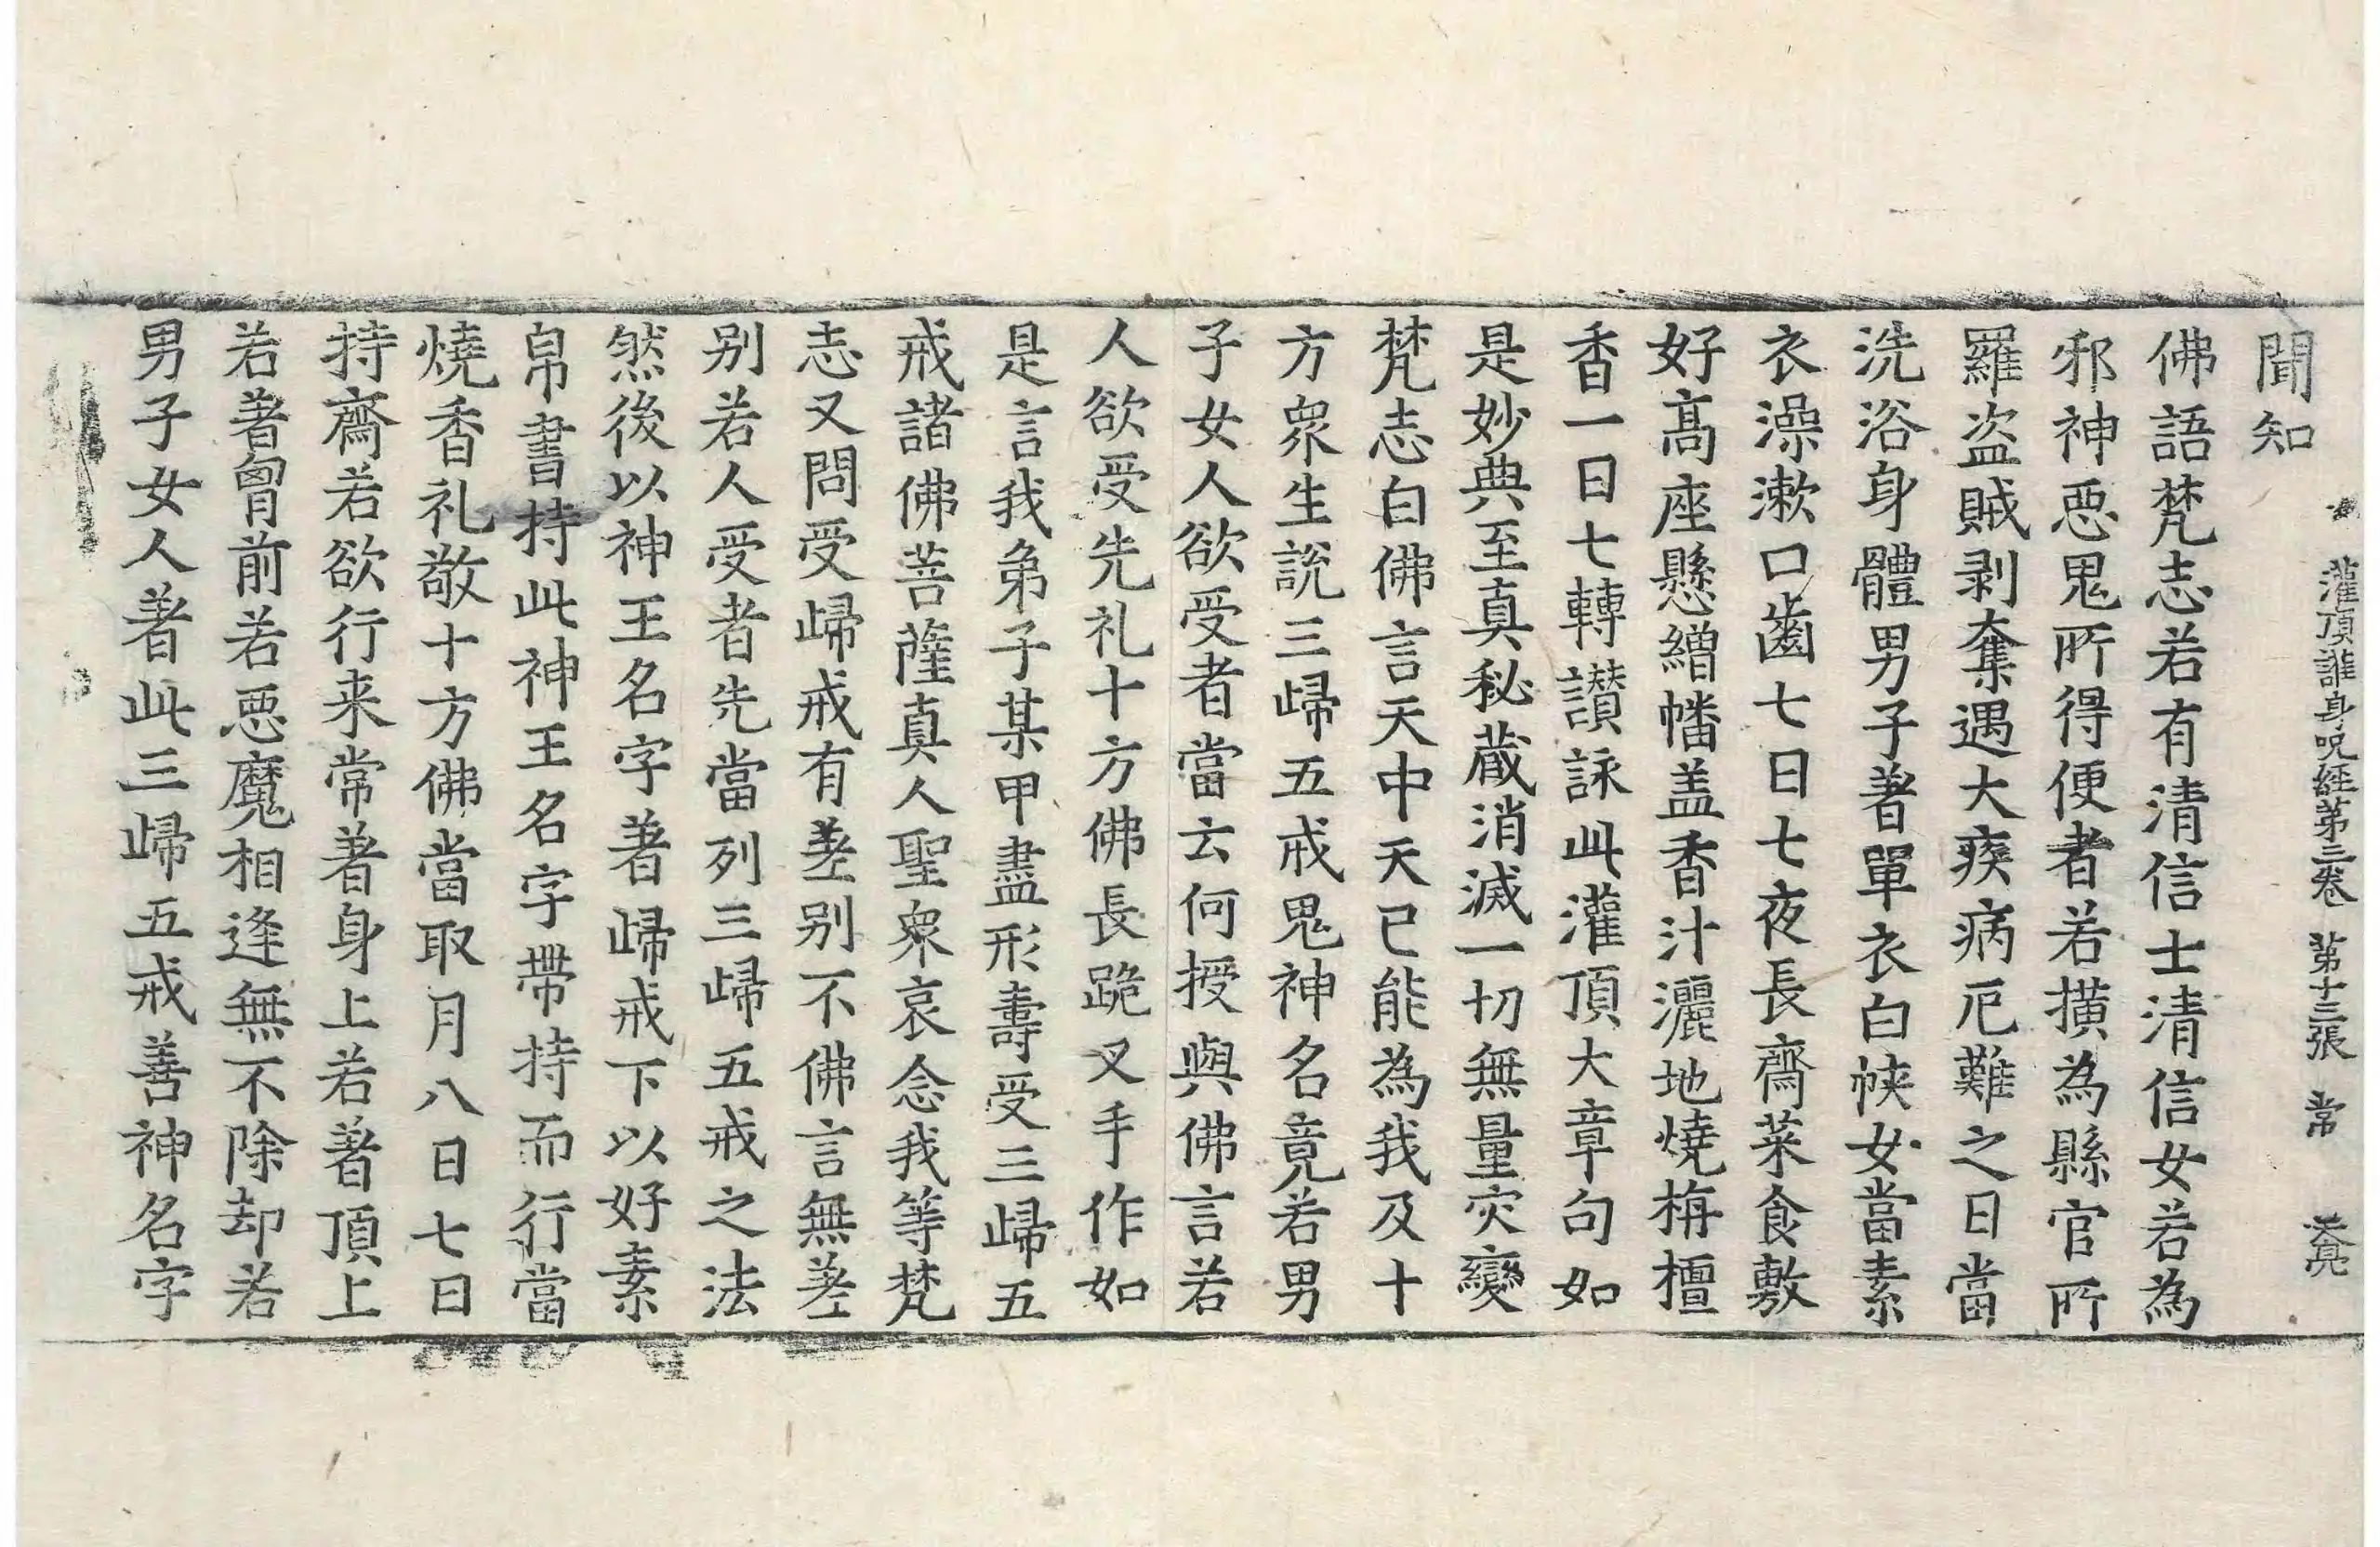 灌頂護身呪經第三卷 第十三張 常
聞知
佛語梵志若有清信士清信女若為
邪神惡鬼所得便者若橫為縣官所
羅盜賊剥奪遇大疾病厄難之日當
洗浴身體男子著單衣白帢女當素
衣澡漱口齒七日七夜長齋菜食敷
好髙座懸繒幡盖香汁灑地燒栴檀
香一日七轉讃詠此灌頂大章句如
是妙典至真秘蔵消滅一切無量灾變
梵志白佛言天中天已能為我及十
方衆生說三歸五戒鬼神名竟若男
子女人欲受者當云何授與佛言若
人欲受先礼十方佛長跪叉手作如
是言我弟子某甲盡形壽受三歸五
戒諸佛菩薩真人聖衆哀念我等梵
志又問受歸戒有差别不佛言無差
别若人受者先當列三歸五戒之法
然後以神王名字著歸戒下以好素
帛書持此神王名字帶持而行當
燒香礼敬十方佛當取月八日七日
持齋若欲行来常著身上若著頂上
若著胷前若惡魔相逢無不除却若
男子女人著此三歸五戒善神名字